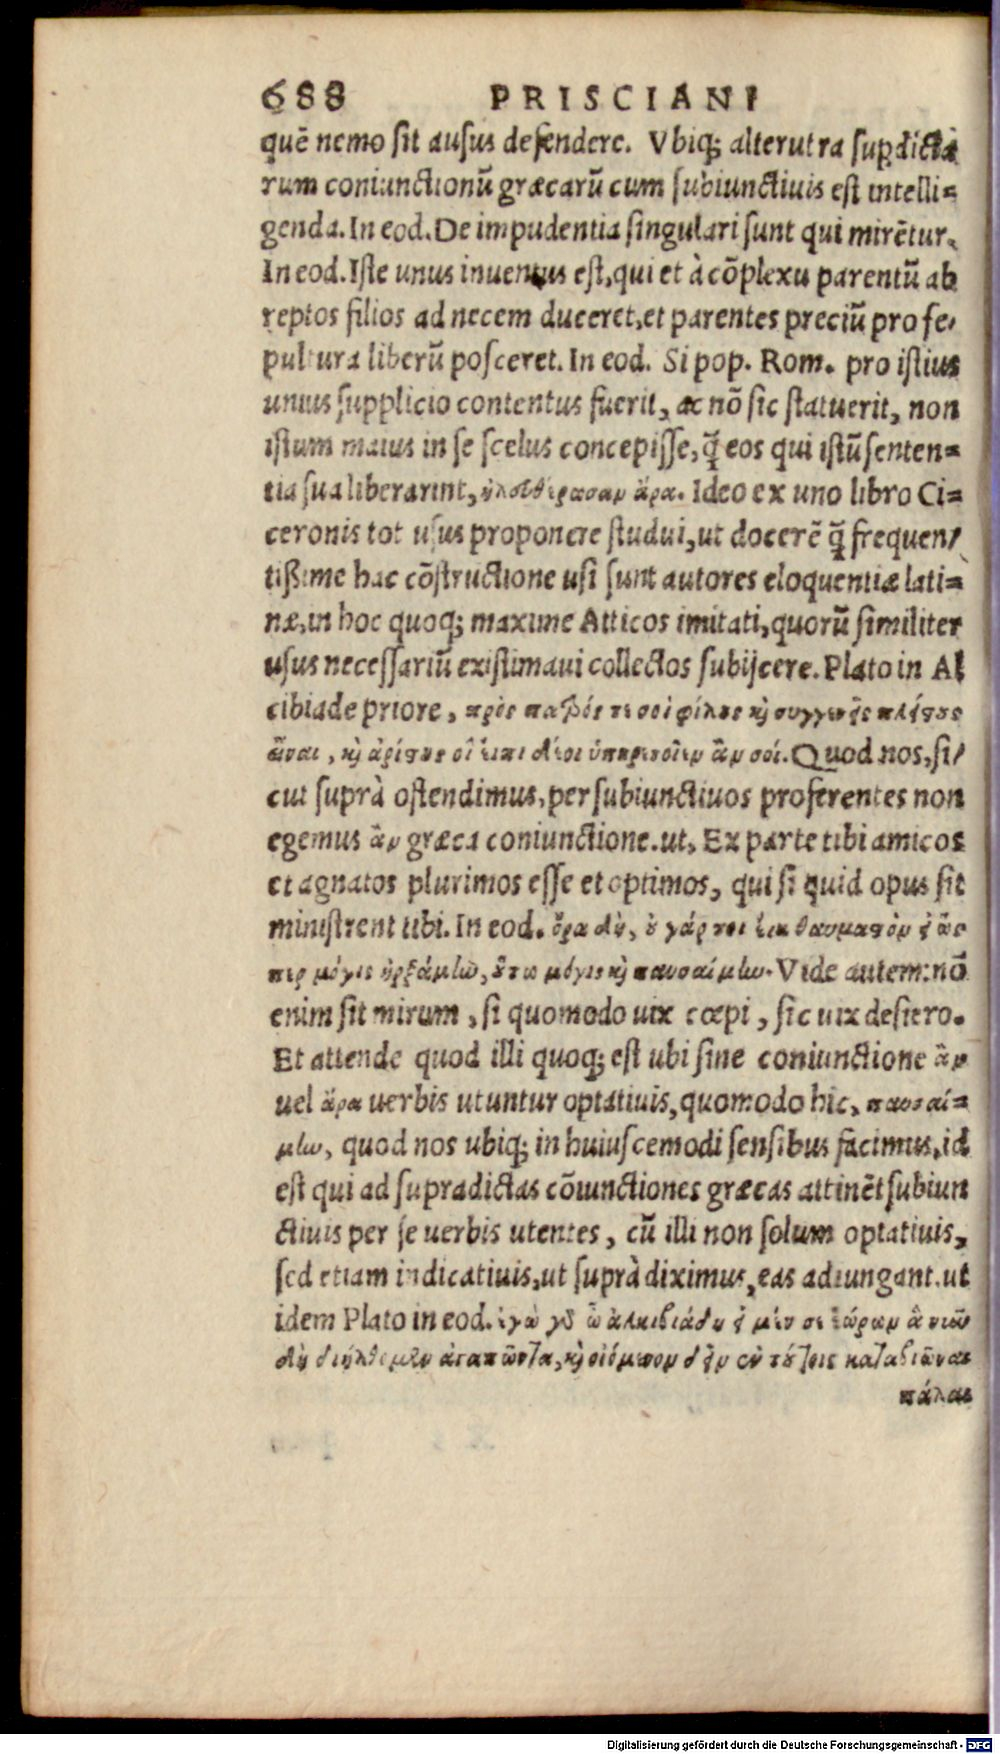 688 PRISCIANI
quē nemo sit ausus defendere. Vbiq; alterutra supdicta
rum coniunctionū græcarū cum subiunctiuis est intelli=
genda. In eod. De impudentia singulari sunt qui mirētur.
In eod. Iste unus inuentus est, qui et à cōplexu parentū ab
reptos filios ad necem duceret, et parentes preciū pro se/
pultura liberū posceret. In eod. Si pop. Rom. pro istius
unius supplicio contentus fuerit, ac nō sic statuerit, non
istum maius in se scelus concepisse, q̄ eos qui istū senten=
tia sua liberarint, ἄρα. Ideo ex uno libro Ci=
ceronis tot usus proponere studui, ut docerē q̄ frequen/
tißime hac cōstructione usi sunt autores eloquentiæ lati=
næ, in hoc quoq; maxime Atticos imitati, quorū similiter
usus necessariū existimaui collectos subijcere. Plato in Al
cibiade priore, πρὸς πατρός τε σοὶ φίλους καὶ συγγενεῖς πλείστους
εἶναι, καὶ ἀρίστους οἳ εἴ τι δέοι ὑπηρετοῖεν ἄν σοι. Quod nos, si/
cut suprà ostendimus, per subiunctiuos proferentes non
egemus ἂν græca coniunctione. ut, Ex parte tibi amicos
et agnatos plurimos esse et optimos, qui si quid opus sit
ministrent tibi. In eod. ὅρα δὴ, οὐ γάρ τοι εἴη θαυμαστὸν εἰ ὥσ
περ μόγις ἠρξάμην, οὕτω μόγις καὶ παυσαίμην. Vide autem: nō
enim sit mirum, si quomodo uix cœpi, sic uix desiero.
Et attende quod illi quoq; est ubi sine coniunctione ἂν
uel ἄρα uerbis utuntur optatiuis, quomodo hic, παυσαί=
μην, quod nos ubiq; in huiuscemodi sensibus facimus, id
est qui ad supradictas cōiunctiones græcas attinēt subiun
ctiuis per se uerbis utentes, cū illi non solum optatiuis,
sed etiam indicatiuis, ut suprà diximus, eas adiungant. ut
idem Plato in eod. ἐγὼ γὰρ ὦ ἀλκιβιάδη εἰ μέν σε ἑώρων ἃ νῦν
δὴ διῆλθον ἀγαπῶντα, καὶ οἰόμενον δεῖν ἐν τούτοις καταβιῶναι
πάλαι
Digitalisierung gefördert durch die Deutsche Forschungsgemeinschaft - DFG